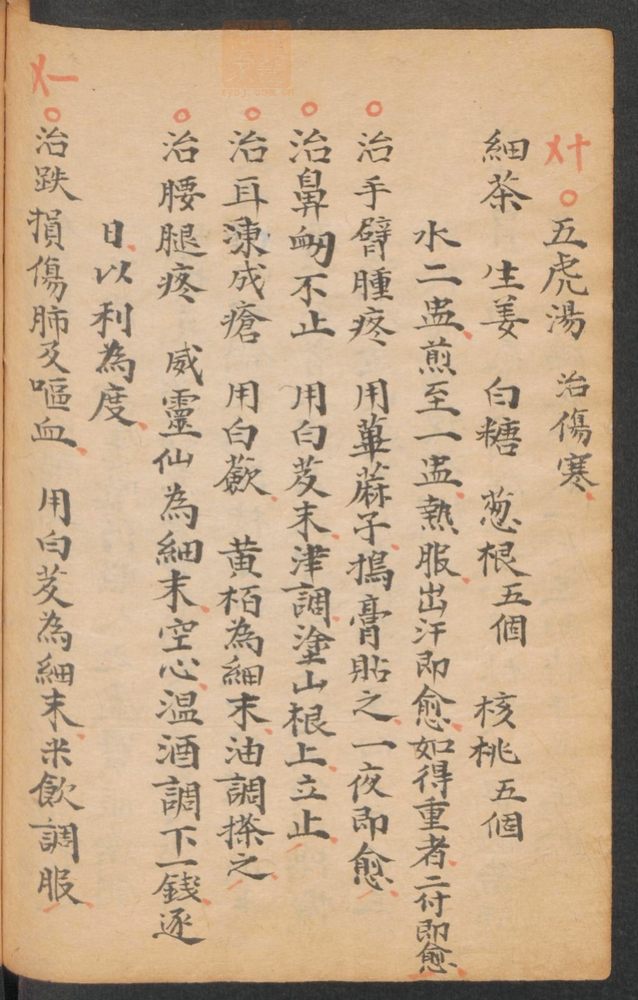 〤十
五虎湯 治傷寒
細茶 生姜 白糖 葱根五個 核桃五個
水二盅煎至一盅熱服出汗即愈如得重者二付即愈
治手臂腫疼 用萆蔴子搗膏貼之一夜即愈
治鼻衂不止 用白芨末津調塗山根上立止
治耳凍成瘡 用白蘞 黄栢為細末油調搽之
治腰腿疼 威靈仙為細末空心温酒調下一錢逐
日以利為度
〤一
治跌損傷肺及嘔血 用白芨為細末米飲調服